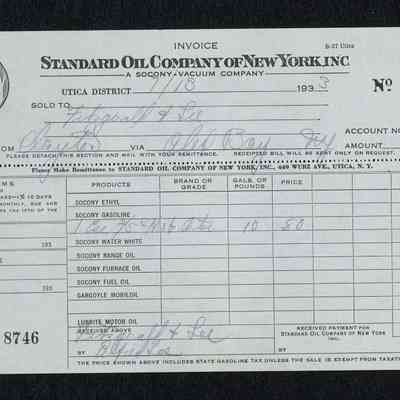 INVOICE
S-27 Ultra
STANDARD OIL COMPANY OF NEW YORK, INC
A SOCONY-VACUUM COMPANY
UTICA DISTRICT 7/18 193 3 No
SOLD TO Fitzgerald & Lee
ACCOUNT NO
OM Clayton VIA Alex Bay NY AMOUNT
PLEASE DETACH THIS SECTION AND MAIL WITH YOUR REMITTANCE. RECEIPTED BILL WILL BE SENT ONLY ON REQUEST.
Please Make Remittance to STANDARD OIL COMPANY OF NEW YORK, INC., 449 WURZ AVE., UTICA, N. Y.
PRODUCTS BRAND OR GRADE GALS. OR POUNDS PRICE
10 DAYS
SOCONY ETHYL
SOCONY GASOLINE
10 50
193 SOCONY WATER WHITE
SOCONY RANGE OIL
193 SOCONY FURNACE OIL
SOCONY FUEL OIL
GARGOYLE MOBILOIL
LUBRITE MOTOR OIL
8746
RECEIVED ABOVE Fitzgerald & Lee
BY
RECEIVED PAYMENT FOR
STANDARD OIL COMPANY OF NEW YORK
INC.
BY
THE PRICE SHOWN ABOVE INCLUDES STATE GASOLINE TAX UNLESS THE SALE IS EXEMPT FROM TAXAT